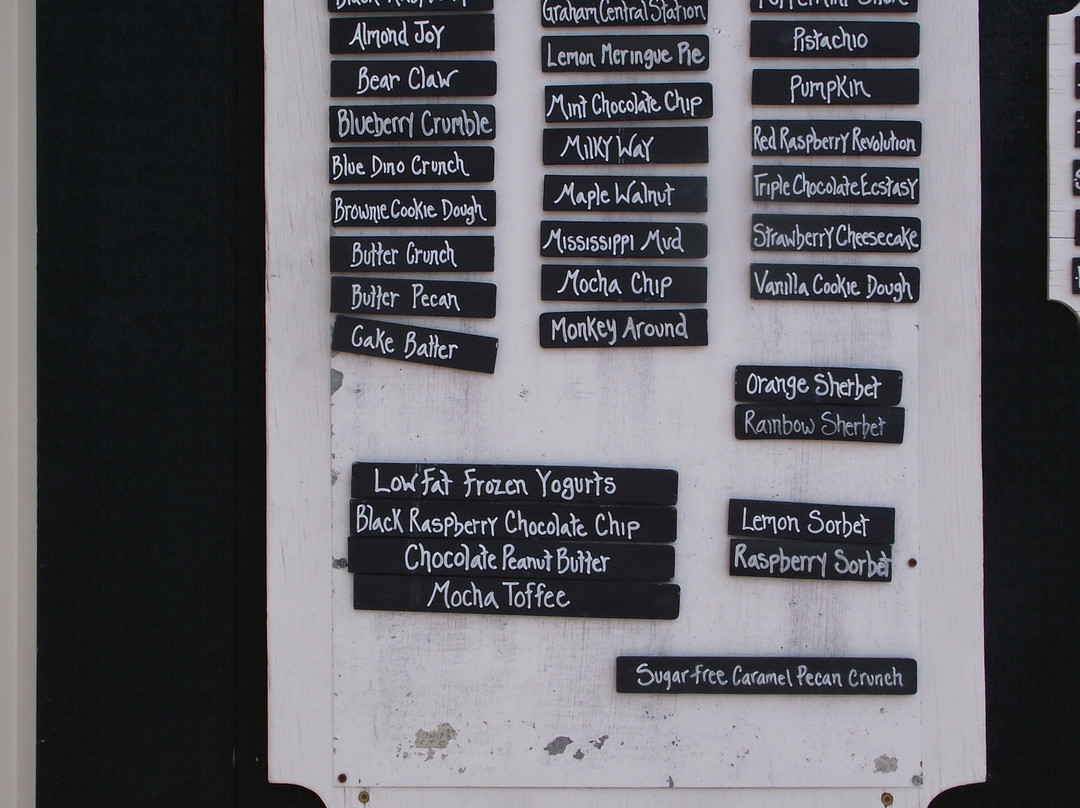 Almond Joy
Bear Claw
Blueberry Crumble
Blue Dino Crunch
Brownie Cookie Dough
Butter Crunch
Butter Pecan
Cake Batter
Graham Central Station
Lemon Meringue Pie
Mint Chocolate Chip
Milky Way
Maple Walnut
Mississippi Mud
Mocha Chip
Monkey Around
Pistachio
Pumpkin
Red Raspberry Revolution
Triple Chocolate Ecstasy
Strawberry Cheesecake
Vanilla Cookie Dough
Orange Sherbet
Rainbow Sherbet
Low Fat Frozen Yogurts
Black Raspberry Chocolate Chip
Chocolate Peanut Butter
Mocha Toffee
Lemon Sorbet
Raspberry Sorbet
Sugar-free Caramel Pecan Crunch